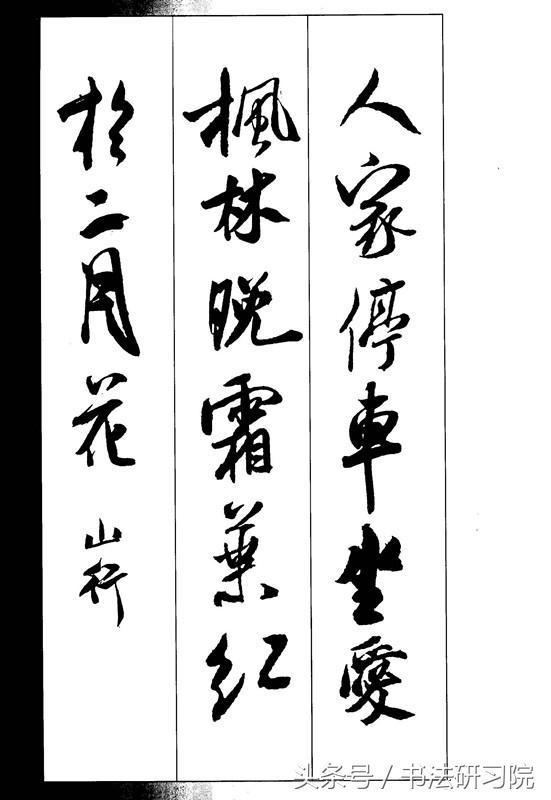 人家停車坐愛
楓林晚霜葉紅
於二月花
山行
头条号/书法研习院